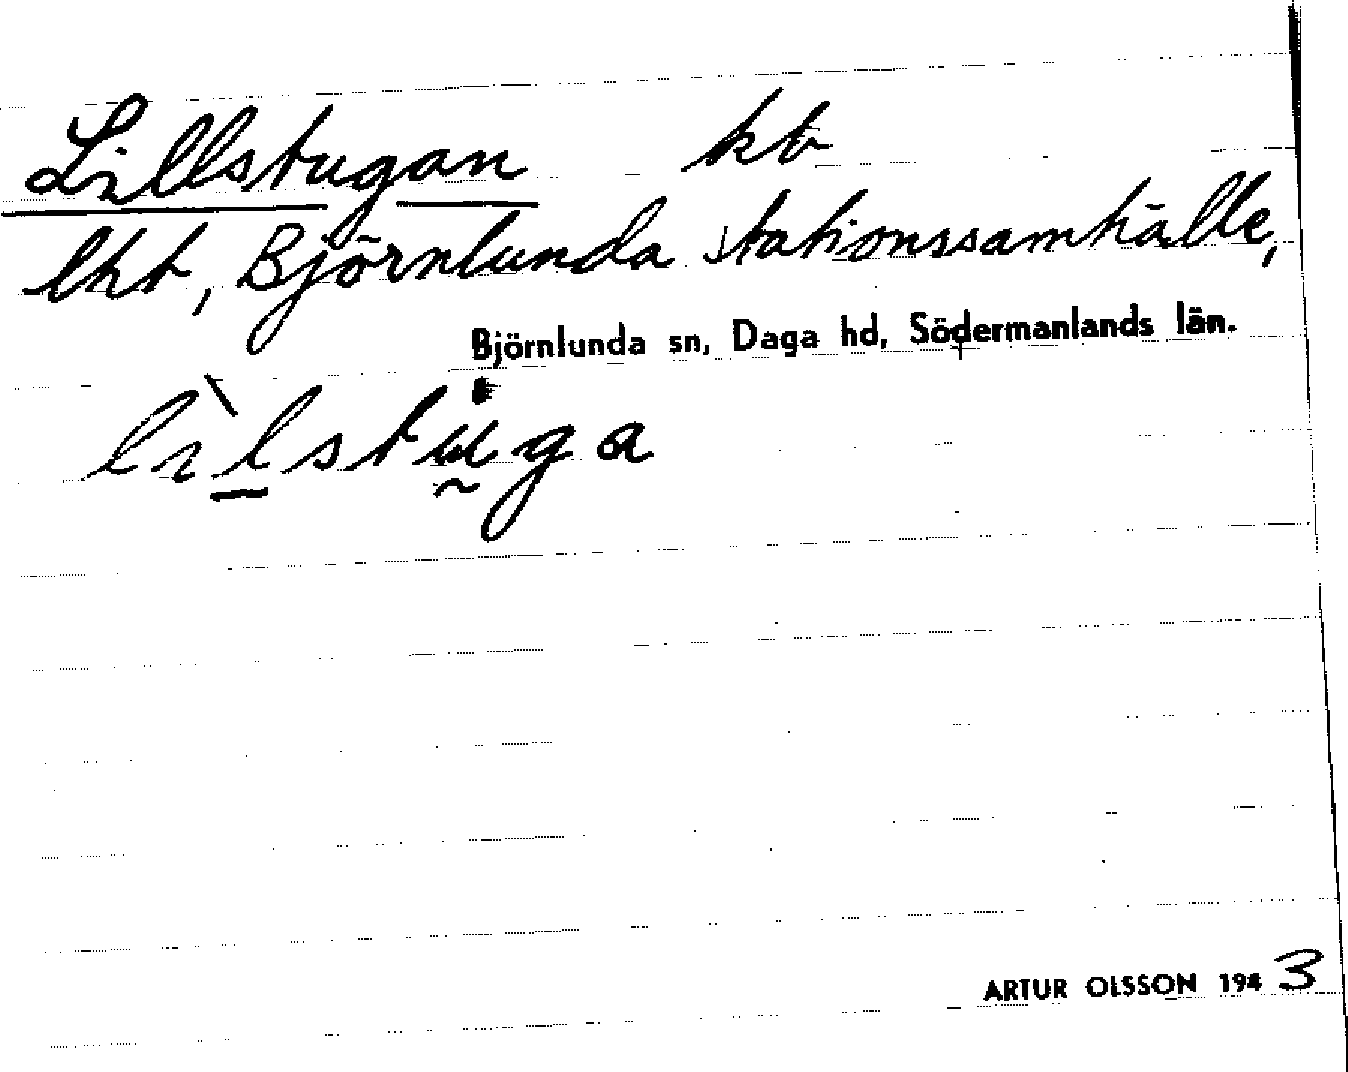 Lillstugan kb
lht, Björnlunda stationssamhälle,
Björnlunda sn, Daga hd, Södermanlands län.
lìlstu̇ga
ARTUR OLSSON 1943